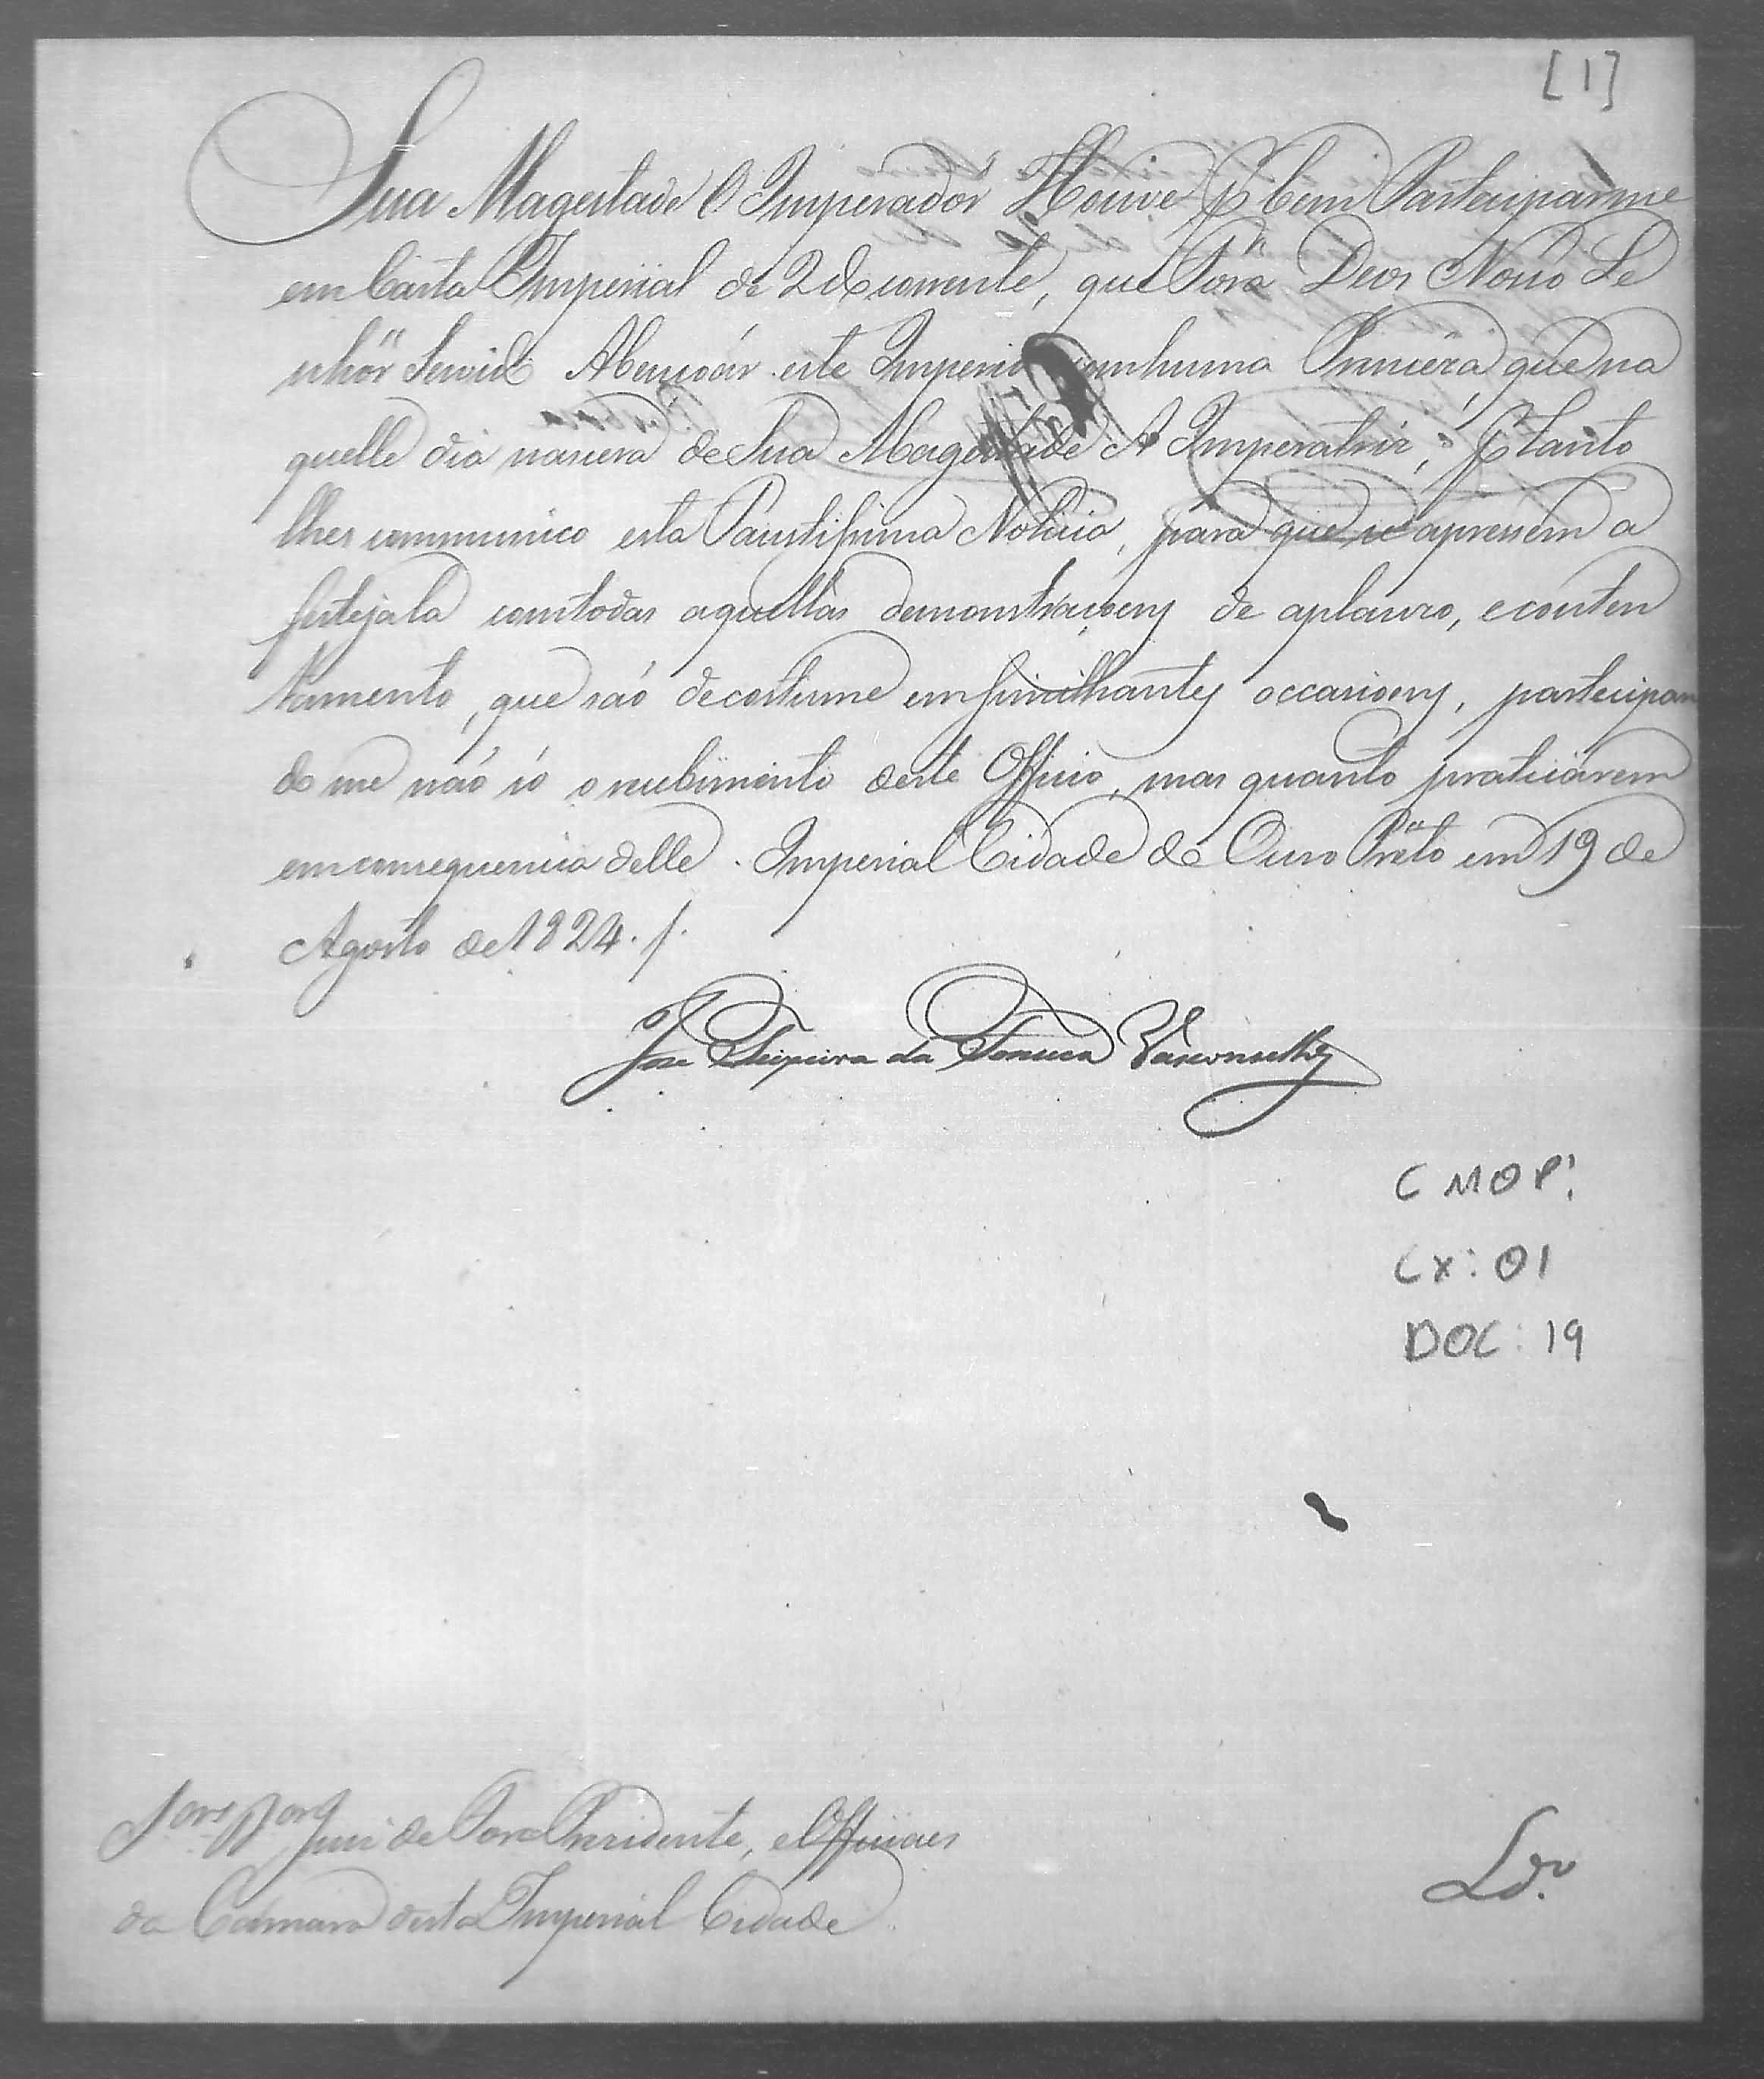 [1]
Sua Magestade O Imperador Houve p bem Participarme
em Carta Imperial de 2 do corrente, que Fora Deos Nosso Se
nhor Servido Abençoár este Imperio com huma Princeza que na
quelle dia nascera de Sua Magestade A Imperatriz; p tanto
lhes communico esta Faustissima Noticia, para que se apressem a
festejala com todas aquellas demonstraçoens de aplauzo, e conten
tamento, que são de costume em similhantes occasioens, participan
do me não só o recebimento deste Officio, mas quanto praticarem
em consequencia delle. Imperial Cidade de Ouro Preto em 19 de
Agosto de 1824./.
Joze Teixeira da Fonseca Vasconcellos
CMOP.
Cx: 01
DOC: 19
Snres Dor Juiz de Fora Prezidente, e Officiaes
da Camara desta Imperial Cidade